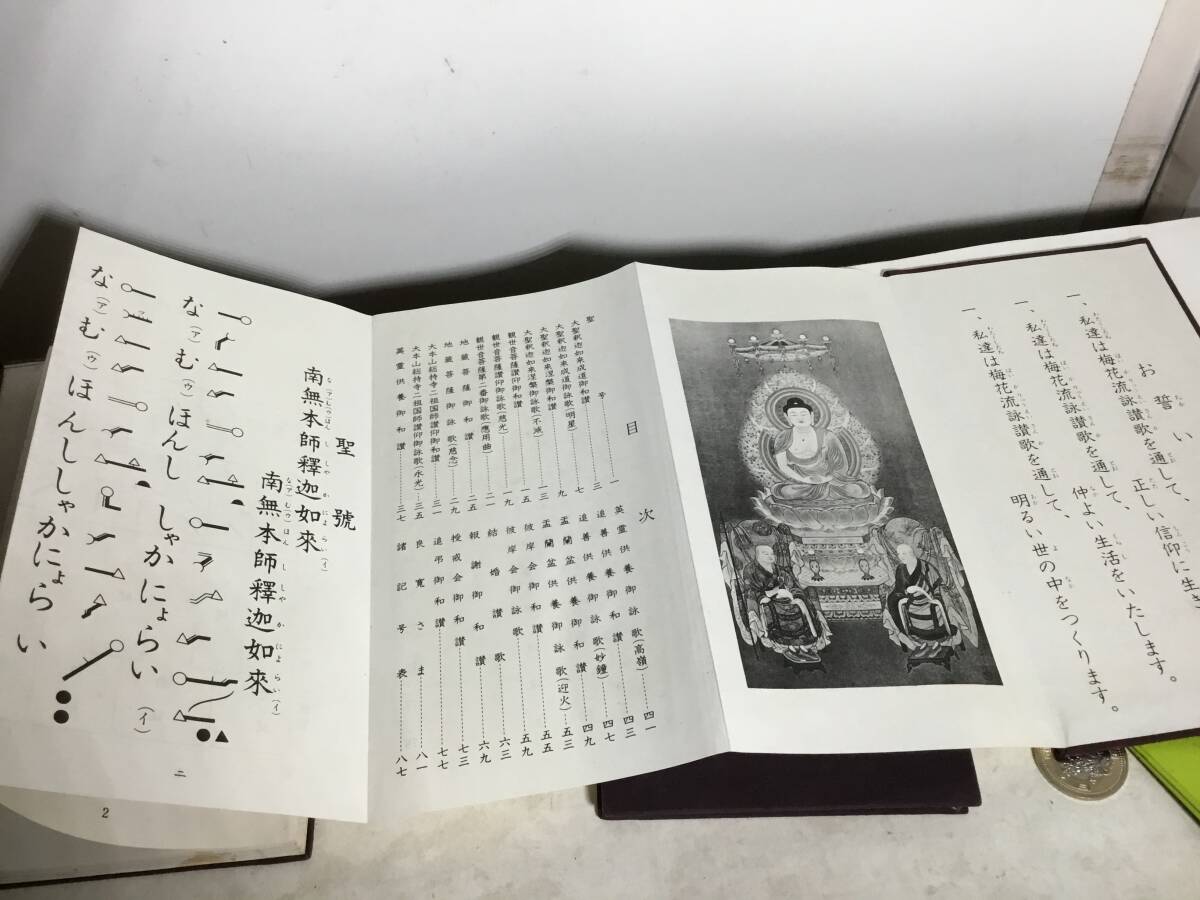 お誓い
一、私達は梅花流詠讃歌を通して、正しい信仰に生き
一、私達は梅花流詠讃歌を通して、仲よい生活をいたします。
一、私達は梅花流詠讃歌を通して、明るい世の中をつくります。
目次
聖号……一
大聖釈迦如来成道御和讃……三
大聖釈迦如来成道御詠歌(明星)……七
大聖釈迦如来涅槃御和讃……九
大聖釈迦如来涅槃御詠歌(不滅)……一三
観世音菩薩讃仰御和讃……一五
観世音菩薩讃仰御詠歌(慈光)……一九
観世音菩薩第二番御詠歌(應用曲)……二一
地蔵菩薩御和讃……二五
地蔵菩薩御詠歌(慈念)……二九
大本山総持寺二祖国師讃仰御和讃……三一
大本山総持寺二祖国師讃仰御詠歌(永光)……三五
英霊供養御和讃……三七
英霊供養御詠歌(高嶺)……四一
追善供養御和讃……四三
追善供養御詠歌(妙鐘)……四七
盂蘭盆供養御和讃……四九
盂蘭盆供養御詠歌(迎火)……五三
彼岸会御和讃……五五
彼岸会御詠歌……五九
結婚讃歌……六三
報謝御和讃……六九
授戒会御和讃……七三
追弔御和讃……七七
良寛さま……八一
諸記号表……八七
聖號
南無本師釋迦如來
南無本師釋迦如來
な(ア)む(ウ)ほんし しゃかにょらい(イ)
な(ア)む(ウ)ほんししゃかにょらい
二
2